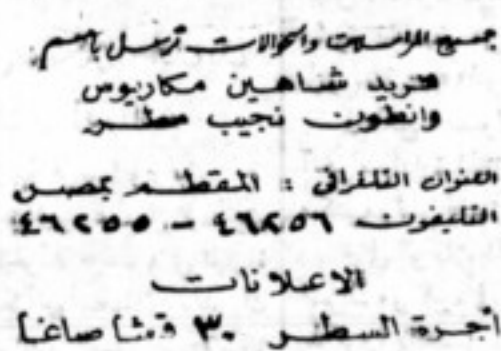 جميع المراسلات والحوالات ترسل باسم
فريد شاهين مكاريوس
وانطون نجيب مطر
العنوان التلغرافي : المقطم بمصر
التليفون ٤٦٢٥٦ - ٤٦٢٥٥
الاعلانات
أجرة السطر ٣٠ قرشا صاغا